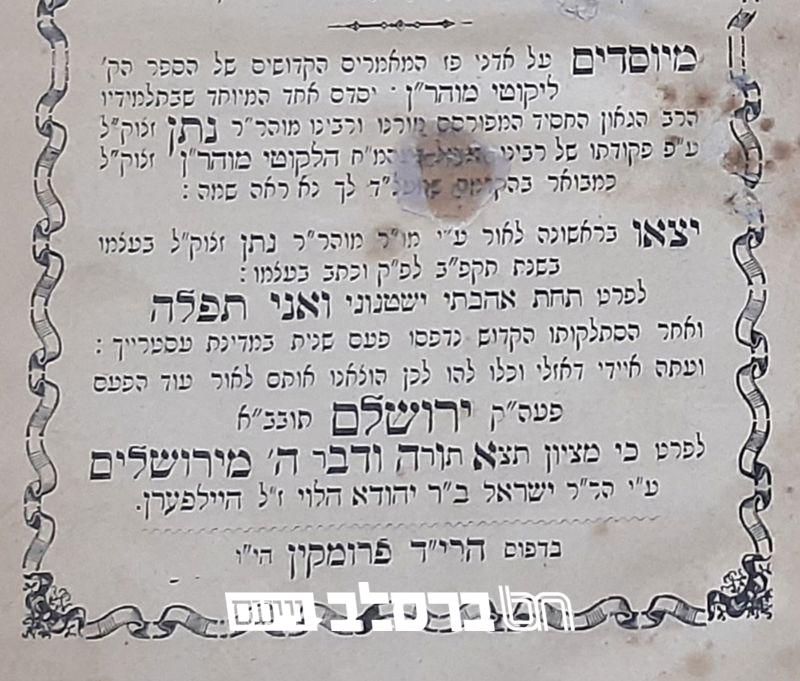 מיוסדים על אדני פז המאמרים הקדושים של הספר הק׳
ליקוטי מוהר״ן · יסדם אחד המיוחד שבתלמידיו
הרב הגאון החסיד המפורסם מורנו ורבינו מוהר״ר נתן זצוק״ל
ע״פ פקודתו של רבינו הלקוטי מוהר״ן זצוק״ל
כמבואר לך נא ראה שמה :
יצאו בראשונה לאור ע״י מו״ר מוהר״ר נתן זצוק״ל בעצמו
בשנת תקפ״ב לפ״ק וכתב בעצמו :
לפרט תחת אהבתי ישטנוני ואני תפלה
ואחר הסתלקותו הקדוש נדפסו פעם שנית במדינת עסטרייך :
ועתה איידי דאזלי וכלו להו לכן הוצאנו אותם לאור עוד הפעם
פעה״ק ירושלם תובב״א
לפרט כי מציון תצא תורה ודבר ה׳ מירושלים
ע״י הר״ר ישראל ב״ר יהודא הלוי ז״ל היילפערן.
בדפוס הרי״ד פרומקין הי״ו
ברסלב ניועס